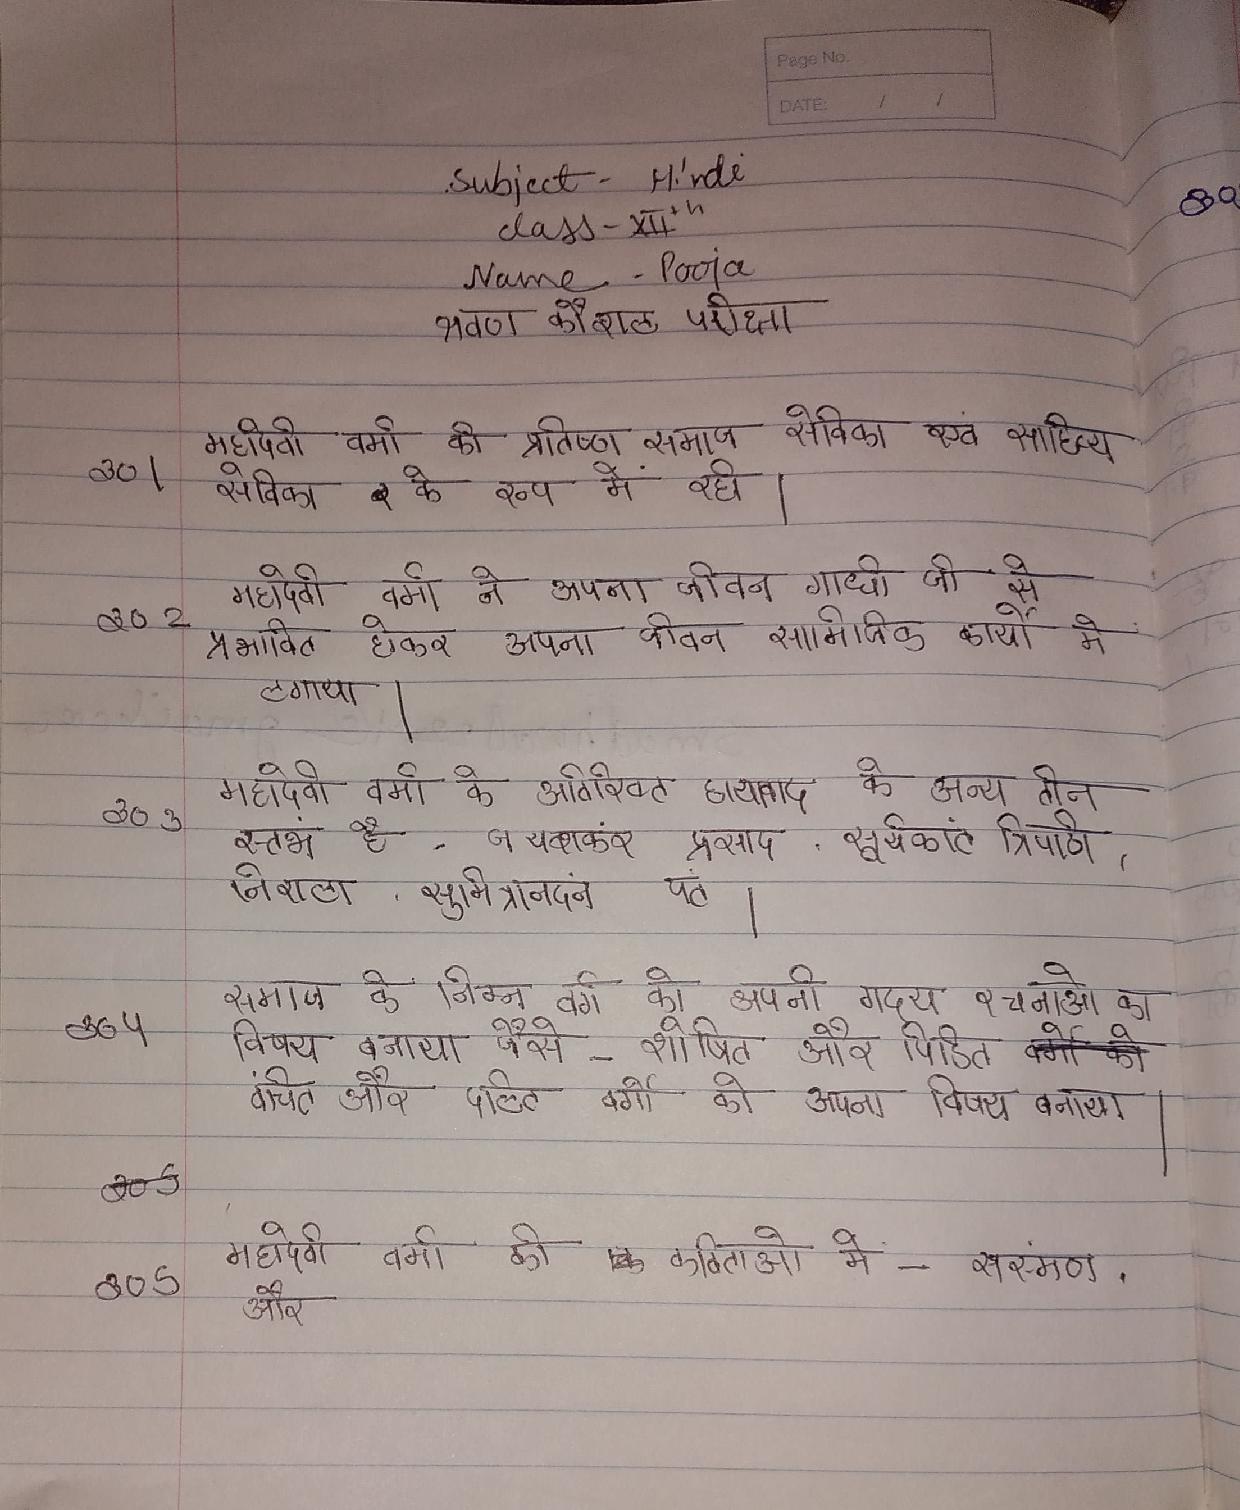 Page No.
DATE: / /
Subject - Hindi
class - XIIth
Name - Pooja
श्रवण कौशल परीक्षा
महादेवी वर्मा की प्रतिष्ठा समाज सेविका एवं साहित्य
उ० 1 सेविका के रूप में रही |
महादेवी वर्मा ने अपना जीवन गाधी जी से
उ० 2 प्रभावित होकर अपना जीवन सामाजिक कार्यो मे
लगाया |
महादेवी वर्मा के अतिरिक्त छायावाद के अन्य तीन
उ० 3 स्तभं है - जयशकंर प्रसाद . सूर्यकातं त्रिपाठी ,
निराला . सुमित्रानदनं पतं |
समाज के निम्न वर्ग को अपनी गद्य रचनाओ का
उ० 4 विषय बनाया जैसे - शोषित और पिडित वर्गो को
वंचित और दलित वर्गो को अपना विषय बनाया |
उ० 5
महादेवी वर्मा की कविताओ मे - सस्ंमण .
उ० 5 और